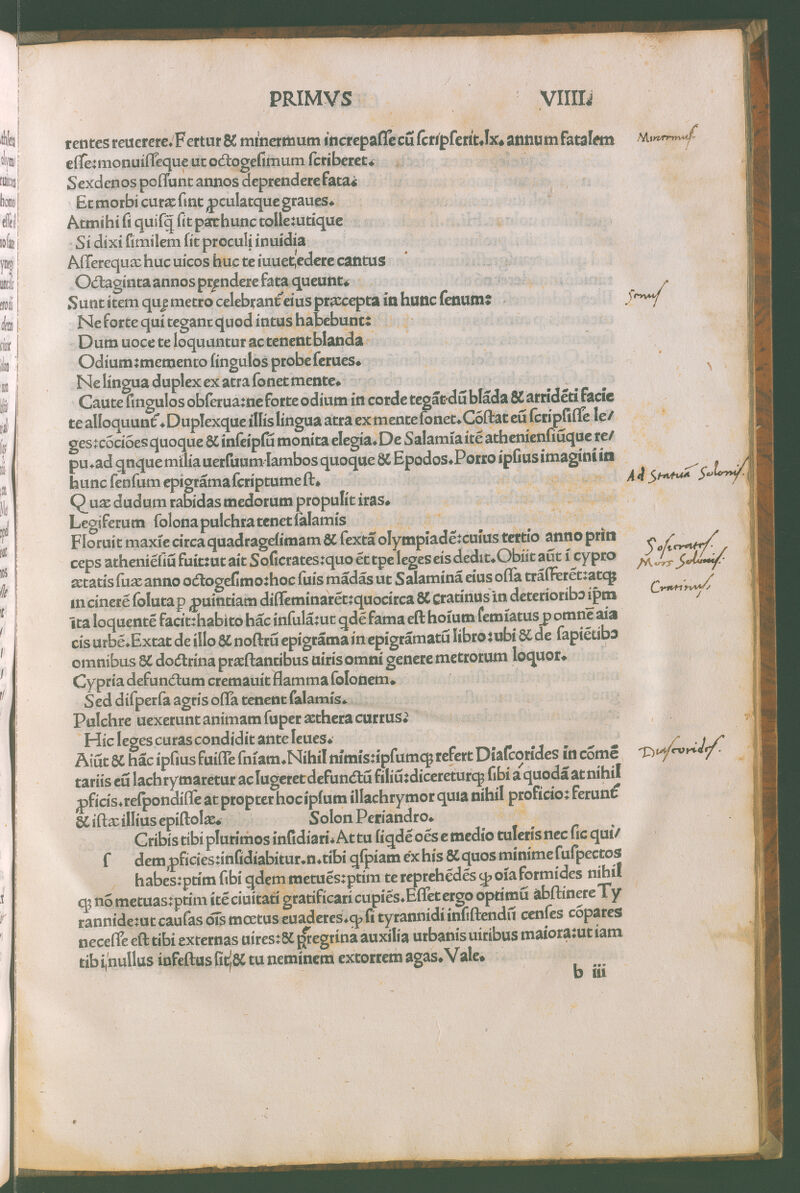 PRIMVS VIIII.
rentes reuerere. Fertur & minermum increpaſſe cū ſcripſerit. lx. annum fatalem
eſſe: monuiſſeque ut octogeſimum ſcriberet.
Sexdenos poſſunt annos deprendere fata.
Et morbi curæ ſint ꝓculatque graues.
At mihi ſi quiſꝗ̃ ſit pat hunc tolle: utique
Si dixi ſimilem ſit procul inuidia
Aſſerequæ huc uicos huc te iuuet, edere cantus
Octaginta annos prendere fata queunt.
Sunt item quę metro celebrant̃ eius præcepta in hunc ſenum:
Ne forte qui tegant quod intus habebunt:
Dum uoce te loquuntur ac tenent blanda
Odium: memento ſingulos probe ſerues.
Ne lingua duplex ex atra ſonet mente.
Caute ſingulos obſerua: ne forte odium in corde tegāt dū blāda & arridēti facie
te alloquunt̃. Duplexque illis lingua atra ex mente ſonet. Cōſtat eū ſcripſiſſe le/
ges: cōciōes quoque & in ſeipſū monita elegia. De Salamia itē athenienſiūque re/
pu. ad qnque milia uerſuum Iambos quoque & Epodos. Porro ipſius imagini in
hunc ſenſum epigrāma ſcriptum eſt.
Quæ dudum rabidas medorum propulit iras.
Legiferum ſolona pulchra tenet ſalamis
Floruit maxīe circa quadrageſimam & ſextā olympiadē: cuius tertio anno prin
ceps atheniēſiū fuit: ut ait Soſicrates: quo ēt tp̄e leges eis dedit. Obiit aūt ī cypro
ætatis ſuæ anno octogeſimo: hoc ſuis mādās ut Salaminā eius oſſa trāſferēt: atqꝫ
in cinerē ſoluta p ꝓuintiam diſſeminarēt: quocirca & cratinus in deterioribꝯ ip̄m
ita loquentē facit: habito hāc inſulā: ut qdē fama eſt hoīum ſemiatus p omnē aīa
cis urbē. Extat de illo & noſtrū epigrāma in epigrāmatū libro: ubi & de ſapiētibꝯ
omnibus & doctrina præſtantibus uiris omni genere metrorum loquor.
Cypria defunctum cremauit flamma ſolonem.
Sed diſperſa agris oſſa tenent ſalamis.
Pulchre uexerunt animam ſuper æthera currus:
Hic leges curas condidit ante leues.
Aiūt & hāc ipſius fuiſſe ſnīam. Nihil nimis: ipſumqꝫ refert Diaſcorides in cōmē
tariis eū lachrymaretur ac lugeret defunctū filiū: dicereturqꝫ ſibi a quodā at nihil
ꝓficis. reſpondiſſe at propter hoc ipſum illachrymor quia nihil proficio: ferunt̃
& iſtæ illius epiſtolæ. Solon Periandro.
Cribis tibi plurimos inſidiari. At tu ſiqdē oēs e medio tuleris nec ſic qui/
ſ dem ꝓficies: inſidiabitur. n. tibi qſpiam ex his & quos minime ſuſpectos
habes: ptim ſibi qdem metuēs: ptim te reprehēdēs ꝙ oīa formides nihil
qꝫ nō metuas: ptim itē ciuitati gratificari cupiēs. Eſſet ergo optimū abſtinere Ty
rannide: ut cauſas oīs mœtus euaderes. ꝙ ſi tyrannidi inſiſtendū cenſes cōpares
neceſſe eſt tibi externas uires: & peregrina auxilia urbanis uiribus maiora: ut iam
tibi, nullus infeſtus ſit, & tu neminem extorrem agas. Vale.
b iii
Minermus.
Senus
Ad Statuā Solonis.
Soſicrates.
Mors Solonis.
Cratinus.
Diaſcorides.